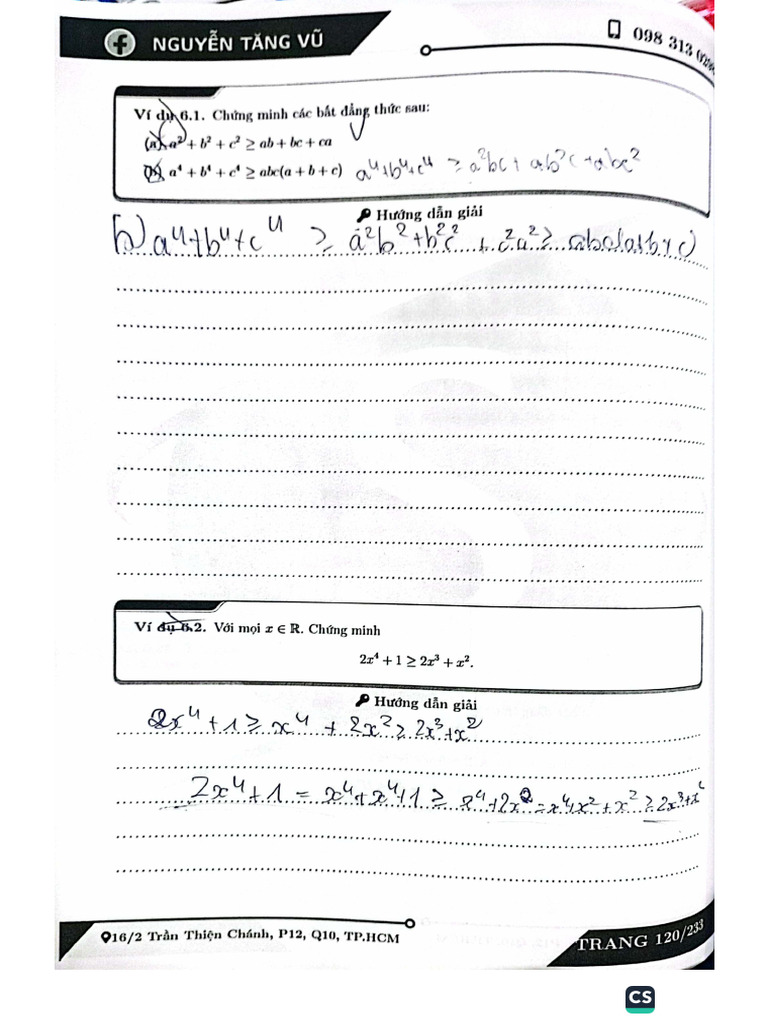 NGUYỄN TĂNG VŨ
098 313
Ví dụ 6.1. Chứng minh các bất đẳng thức sau:
(a) a² + b² + c² ≥ ab + bc + ca
(b) a⁴ + b⁴ + c⁴ ≥ abc(a + b + c) a⁴+b⁴+c⁴ ≥ a²bc + ab²c + abc²
Hướng dẫn giải
b) a⁴+b⁴+c⁴ ≥ a²b²+b²c² + c²a² ≥ abc(a+b+c)
Ví dụ 6.2. Với mọi x ∈ ℝ. Chứng minh
2x⁴ + 1 ≥ 2x³ + x².
Hướng dẫn giải
2x⁴ + 1 ≥ x⁴ + 2x² ≥ 2x³+x²
2x⁴ + 1 = x⁴+x⁴+1 ≥ x⁴+2x² = x⁴+x²+x² ≥ 2x³+x²
16/2 Trần Thiện Chánh, P12, Q10, TP.HCM
TRANG 120/233
CS